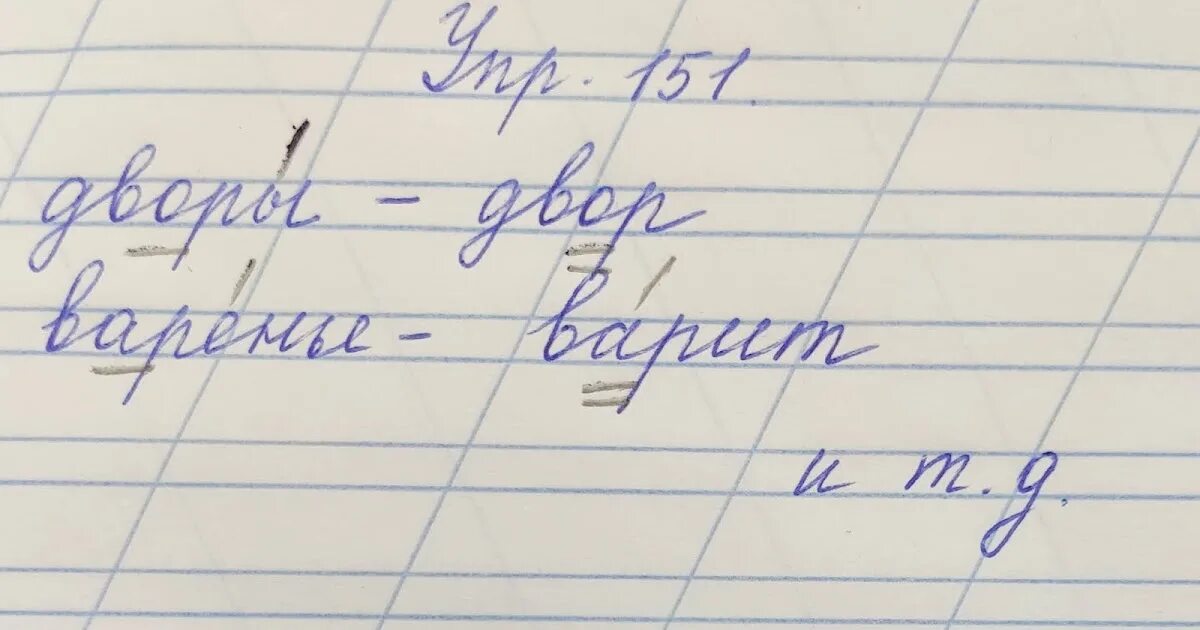 Упр. 151.
дворы́ – двор
варе́нье – ва́рит
и т. д.